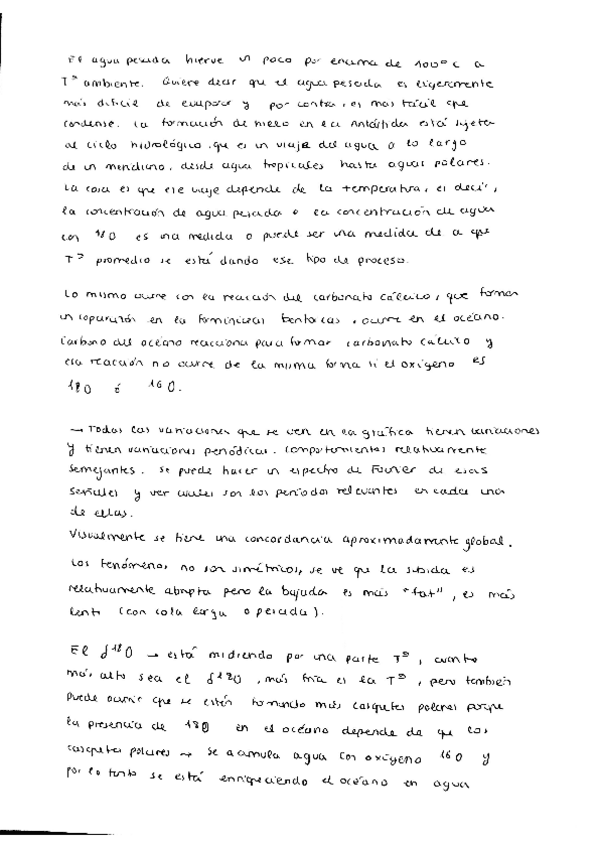 El agua pesada hierve un poco por encima de 100ºC a
Tª ambiente. Quiere decir que el agua pesada es ligeramente
más dificil de evaporar y por contra, es mas fácil que
condense. La formación de hielo en la Antártida está sujeta
al ciclo hidrológico que es un viaje del agua a lo largo
de un meridiano, desde aguas tropicales hasta aguas polares.
La cosa es que ese viaje depende de la temperatura, es decir,
la concentración de agua pesada o la concentración de agua
con 18O es una medida o puede ser una medida de a que
Tª promedio se está dando ese tipo de proceso.
Lo mismo ocurre con la reacción del carbonato cálcico, que forman
un caparazón en la foraminiferas bentonicas, ocurre en el océano.
Carbono del océano reacciona para formar carbonato cálcico y
esa reacción no ocurre de la misma forma si el oxígeno es
18O ó 16O.
→ Todas las variaciones que se ven en la gráfica tienen variaciones
y tienen variaciones periódicas. Comportamientos relativamente
semejantes. Se puede hacer un espectro de Fourier de esas
señales y ver cuales son los periodos relevantes en cada una
de ellas.
Visualmente se tiene una concordancia aproximadamente global.
Los fenómenos no son simétricos, se ve que la subida es
relativamente abrupta pero la bajada es más "fat", es más
lenta (con cola larga o pesada).
El δ18O → está midiendo por una parte Tª, cuanto
más alto sea el δ18O, más fria es la Tª, pero también
puede ocurrir que se estén formando más casquetes polares porque
la presencia de 18O en el océano depende de que los
casquetes polares → se acumula agua con oxígeno 16O y
por lo tanto se está enriqueciendo el océano en agua